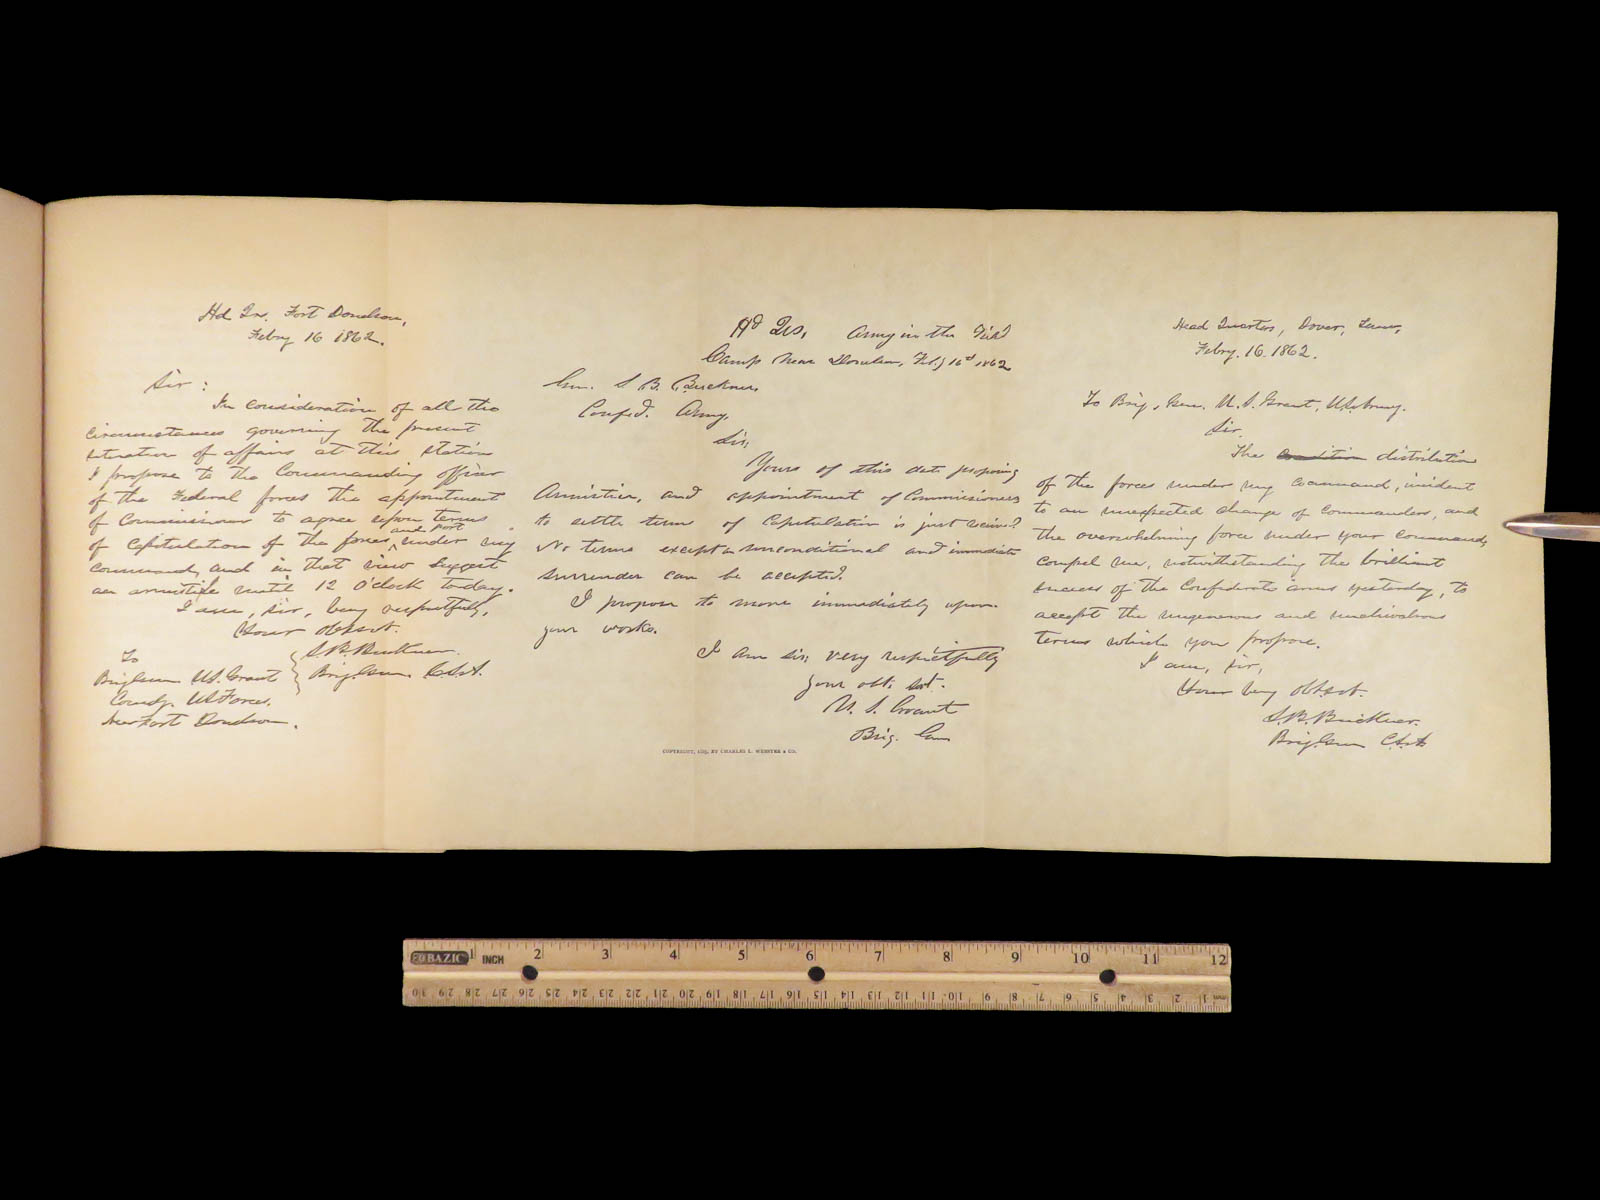 Hd Qrs. Fort Donelson,
Febry 16 1862.
Sir:
In consideration of all the
circumstances governing the present
situation of affairs at this station
I propose to the Commanding officer
of the Federal forces the appointment
of Commissioners to agree upon terms
and Fort
of capitulation of the forces ^ under my
command, and in that view suggest
an armistice until 12 O'clock today.
I am, sir, very respectfully,
Your obt. sert.
S.B. Buckner.
Brig. Gen. C.S.A.
To
Brig Gen U.S. Grant
Comdg. US Forces.
Near Fort Donelson.
Hd Qrs, Army in the Field
Camp near Donelson, Feby 16th 1862
Gen. S. B. Buckner,
Confed. Army,
Sir;
Yours of this date proposing
Armistice, and appointment of Commissioners
to settle terms of Capitulation is just received.
No terms except an unconditional and immediate
surrender can be accepted.
I propose to move immediately upon
your works.
I am sir; very respectfully
your obt. svt.
U. S. Grant
Brig. Gen
COPYRIGHT, 1885, BY CHARLES L. WEBSTER & CO.
Head Quarters, Dover, Tenn,
Febry. 16. 1862.
To Brig. Gen. U. S. Grant, U.S. Army.
Sir,
The condition distribution
of the forces under my command, incident
to an unexpected change of commanders, and
the overwhelming force under your command,
compel me, notwithstanding the brilliant
success of the Confederate arms yesterday, to
accept the ungenerous and unchivalrous
terms which you propose.
I am, sir,
Your very obt. sert.
S.B. Buckner.
Brig. Gen C.S.A
BAZIC 1 INCH 2 3 4 5 6 7 8 9 10 11 12
30 29 28 27 26 25 24 23 22 21 20 19 18 17 16 15 14 13 12 11 10 9 8 7 6 5 4 3 2 1 mm